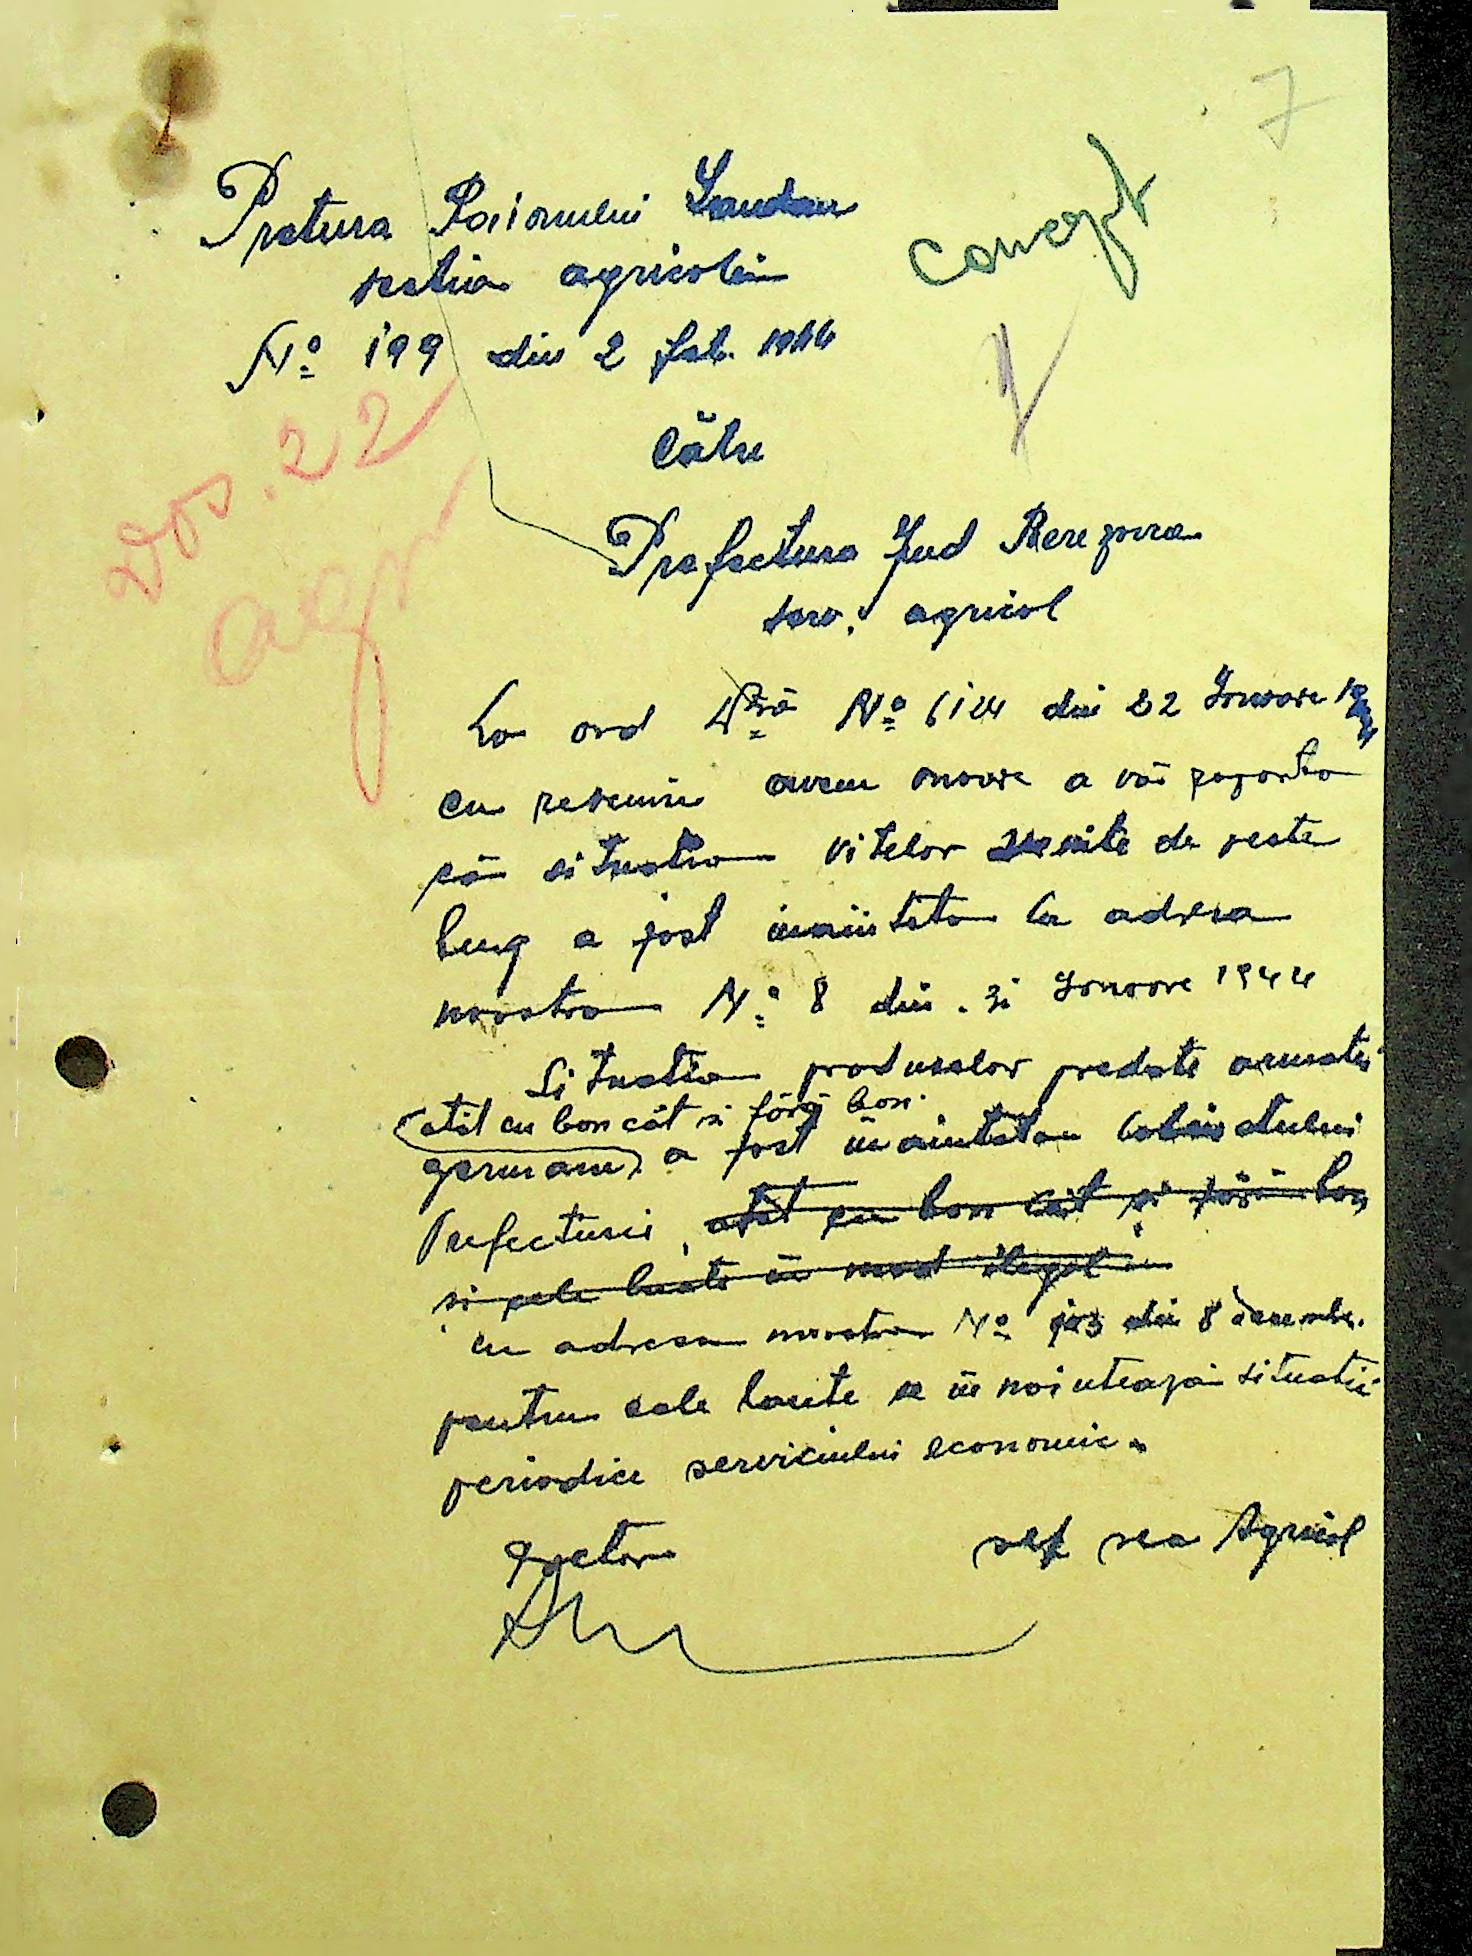 7
Pretura Raionului Landau
sectia agricolă
concept
No 199 din 2 feb. 1944
dos. 22
agr
Către
Prefectura Jud Berezovca
serv. agricol
La ord Dvră No 6124 din 22 Ianuare
cu revenire avem onoare a vă raporta
că situatia vitelor venite de peste
bug a fost inaintata cu adresa
noastra No 8 din 31 Ianuare 1944
Situatia produselor predate armatei
atât cu bon cât si fără bon
germane a fost inaintata Cabinetului
Prefecturii, atât cu bon cât si fără bon
si cele luate in mod ilegal
cu adresa noastra No din 8 decembr.
pentru cele luate se in nointează situatii
periodice serviciului economic.
Pretor
sef sea Agricol